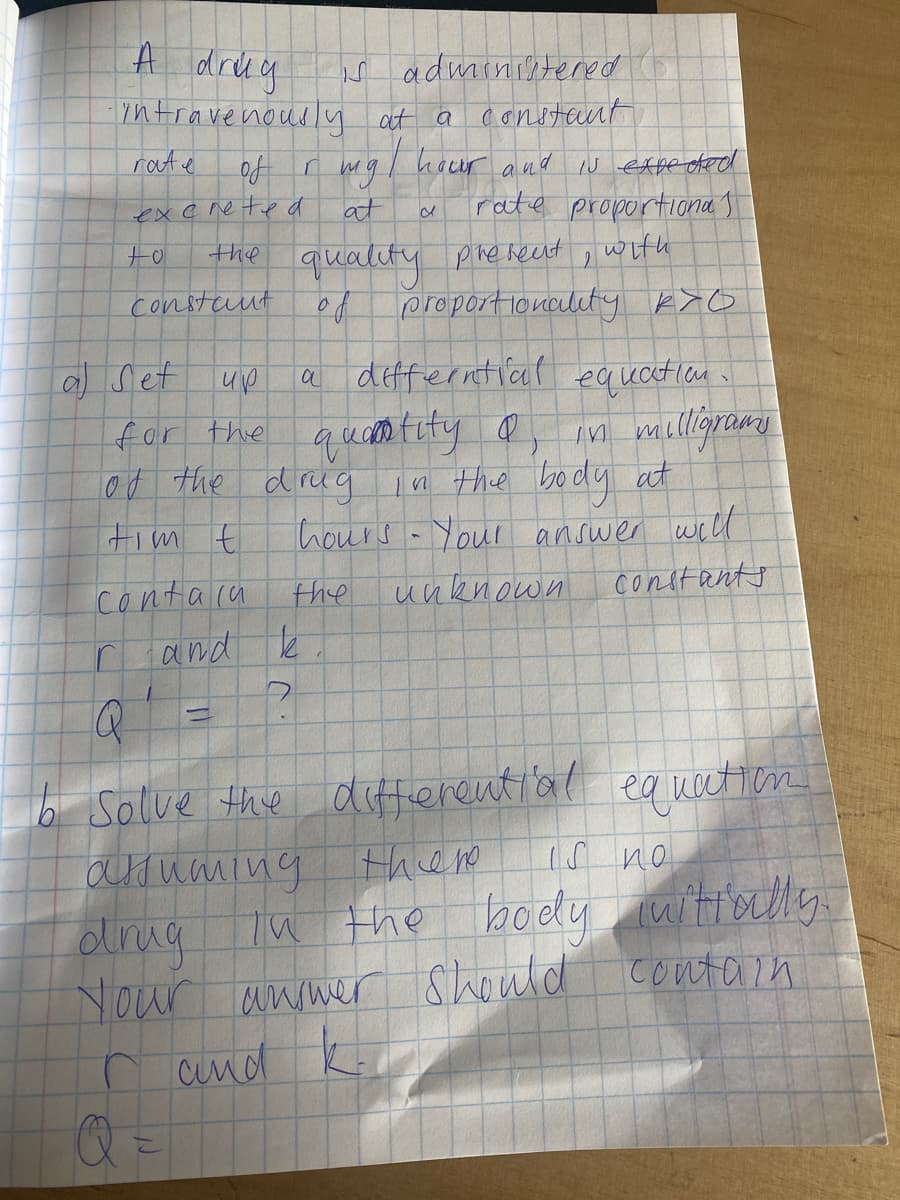 A drug is administered
intravenously at a constant
rate of r mg/hour and is expected
excreted at a rate proportional
to the quality present, with
constant of proportionality k>0
a) Set up a differntial equation.
for the quantity Q, in milligrams
of the drug in the body at
tim t hours - Your answer will
contain the unknown constants
r and k.
Q' = ?
b Solve the differential equation
assuming there is no
drug in the body initially.
Your answer should contain
r and k.
Q =